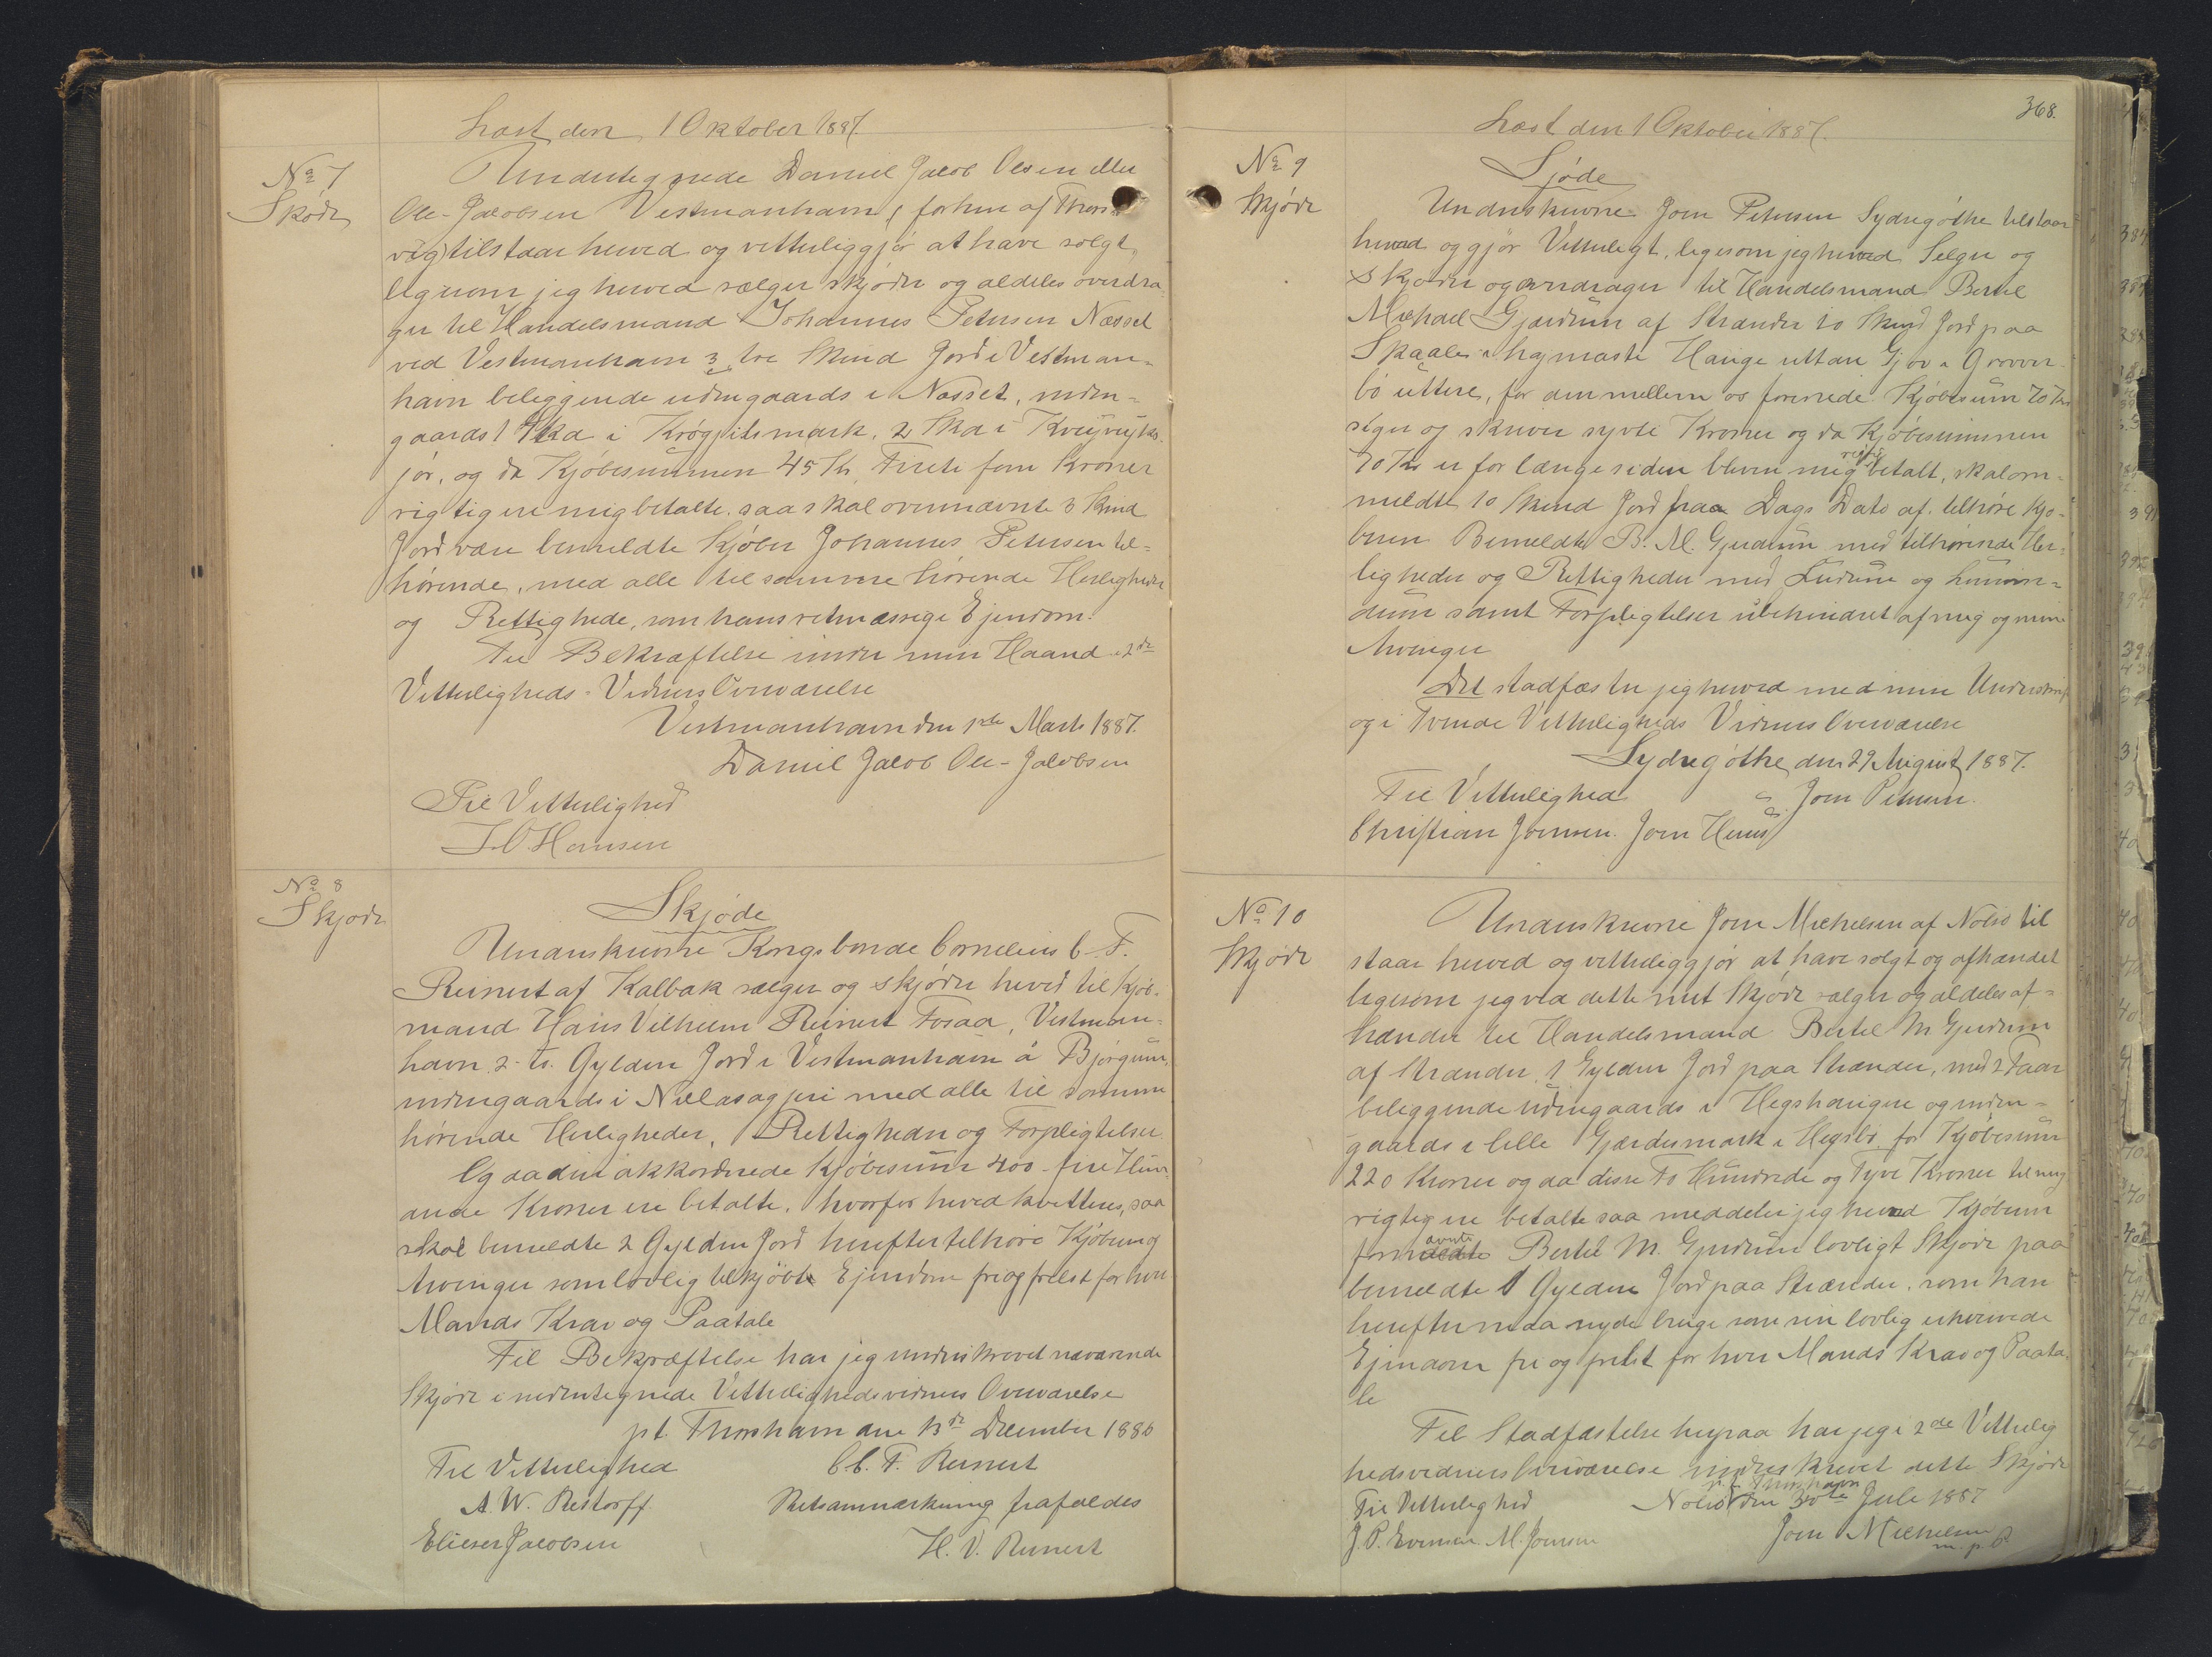 Læst den 1 Oktober 1887.
No 7
Skøde
Undertegnede Daniel Jacob Olesen eller
Ole-Jacobsen Vestmanhavn, forhen af Thors
vig) tilstaar herved og vitterliggjør at have solgt,
ligesom jeg herved sælger skjøder og aldeles overdra
ger til Handelsmand Johannes Petersen Nesset
ved Vestmanhavn 3 tre Skind Jord i Vestman-
havn beliggende udengaards i Nesset, inden-
gaards 1 Skd i Krøgjilsmark, 2 Skd i
jør, og da Kjøbesummen 45 Kr Firti fem Kroner
rigtig ere mig betalte. saa skal overnævnte 3 Skind
Jord være bemeldte Kjøber Johannes Petersen til-
hørende, med alle til samme hørende Herligheder
og Rettighede, som hans retmæssige Ejendom.
Til Bekræftelse under min Haand i 2de
Vitterligheds-Vidners Overværelse
Vestmanhavn den 1ste Marts 1887.
Daniel Jacob Ole-Jacobsen
Til Vitterlighed
J. O. Hansen
No 8
Skjøde
Skjøde
Underskrevne Kongsbonde Cornelius C. F.
Reinert af Kalbak sælger og skjøder herved til Kjøb-
mand Hans Vilhelm Reinert Fosaa, Vestman-
havn 2- to. Gylden Jord i Vestmanhavn á Bjørgum,
indengaards i Niclasagjeri med alle til samme
hørende Herligheder, Rettigheder og Forpligtelser
Og da den akkorderede Kjøbesum 400- fire Hun-
drede Kroner ere betalte, hvorfor herved kvitteres, saa
skal bemeldte 2 Gylden Jord herefter tilhøre Kjøber og
Arvinger som lovlig tilkjøbte Ejendom fri og frelst for hver
Mands Krav og Paatale
Til Bekræftelse har jeg underskrevet nærværende
Skjøde i nedentegnede Vitterlighedsvidners Overværelse
pt. Thorshavn den 13de December 1886
Til Vitterlighed C. C. F. Reinert
A. W. Restorff. Retsanmærkning frafaldes
Elieser Jacobsen H. V. Reinert
368.
Læst den 1 Oktober 1887.
No 9
Skjøde
Sjøde
Underskrevne Joen Petersen Sydregøthe tilstaar
herved og gjør Vitterligt, ligesom jeg herved Selger og
Skjøder og overdrager til Handelsmand Bertel
Michael Gjærdum af Strænder 10 Skind Jord paa
Skaale i hejmaste Hauge uttan Gjov i Grovver-
bø uttere, for den mellem os forenede Kjøbesum 70 Kr
siger og skriver syvti Kroner og da Kjøbesummen
70 Kr er for længe siden bleven mig rigtig betalt, skal om-
meldte 10 Skind Jord fraa Dags Dato af. tilhøre Kjø-
beren Bemeldte B. M. Gjerdum med tilhørende Her-
ligheder og Rettigheder med Ludum og Lunnin-
dum samt Forpligtelser ubehindret af mig og mine
Arvinger
Det stadfæster jeg herved med min Underskrift
og i Tvende Vitterligheds Vidners Overværelse
Sydregøthe, den 29 August 1887.
Til Vitterlighed Joen Petersen.
Christian Joensen. Joen Huus
No 10
Skjøde
Underskrevne Joen Michelsen af Nolsø til
staar herved og vitterliggjør at have solgt og afhændet
ligesom jeg ved dette mit Skjøde sælger og aldeles af-
hænder til Handelsmand Bertel M Gjerdum
af Strænder, 1 Gylden Jord paa Strænder, med 2 Faar
beliggende udengaards i Hegshaugen og inden-
gaards i lille Gjærdesmark i Hegsbø for Kjøbesum
220 Kroner og da disse To Hundrede og Tyve Kroner til mig
rigtig ere betalte saa meddeler jeg herved Kjøberen
fornævnte Bertel M. Gjerdum lovligt Skjøde paa
bemeldte 1 Gylden Jord paa Strænder, som han
herefter maa nyde bruge som sin lovlig erhvervede
Ejendom fri og frelst for hver Mands Krav og Paata-
le
Til Stadfæstelse herpaa har jeg i 2de Vitterlig
hedsvidners Overværelse underskrevet dette Skjøde
p.t. Thorshavn
Til Vitterlighed Nolsø den 30te Juli 1887
J. P. Evensen. M. Joensen Joen Michelsen
m. p. P.